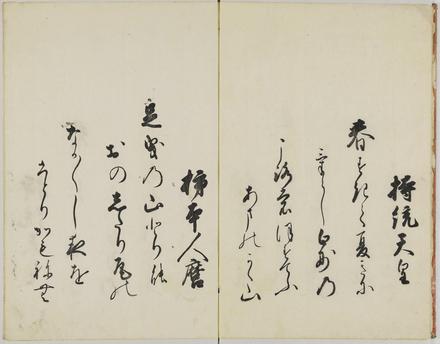 持統天皇
春過きて夏きに
けらし白妙の
ころも保すてふ
あまのかく山
柿本人麿
足曳の山とりの
おのしたり尾の
なか〳〵し夜を
ひとりかもねむ